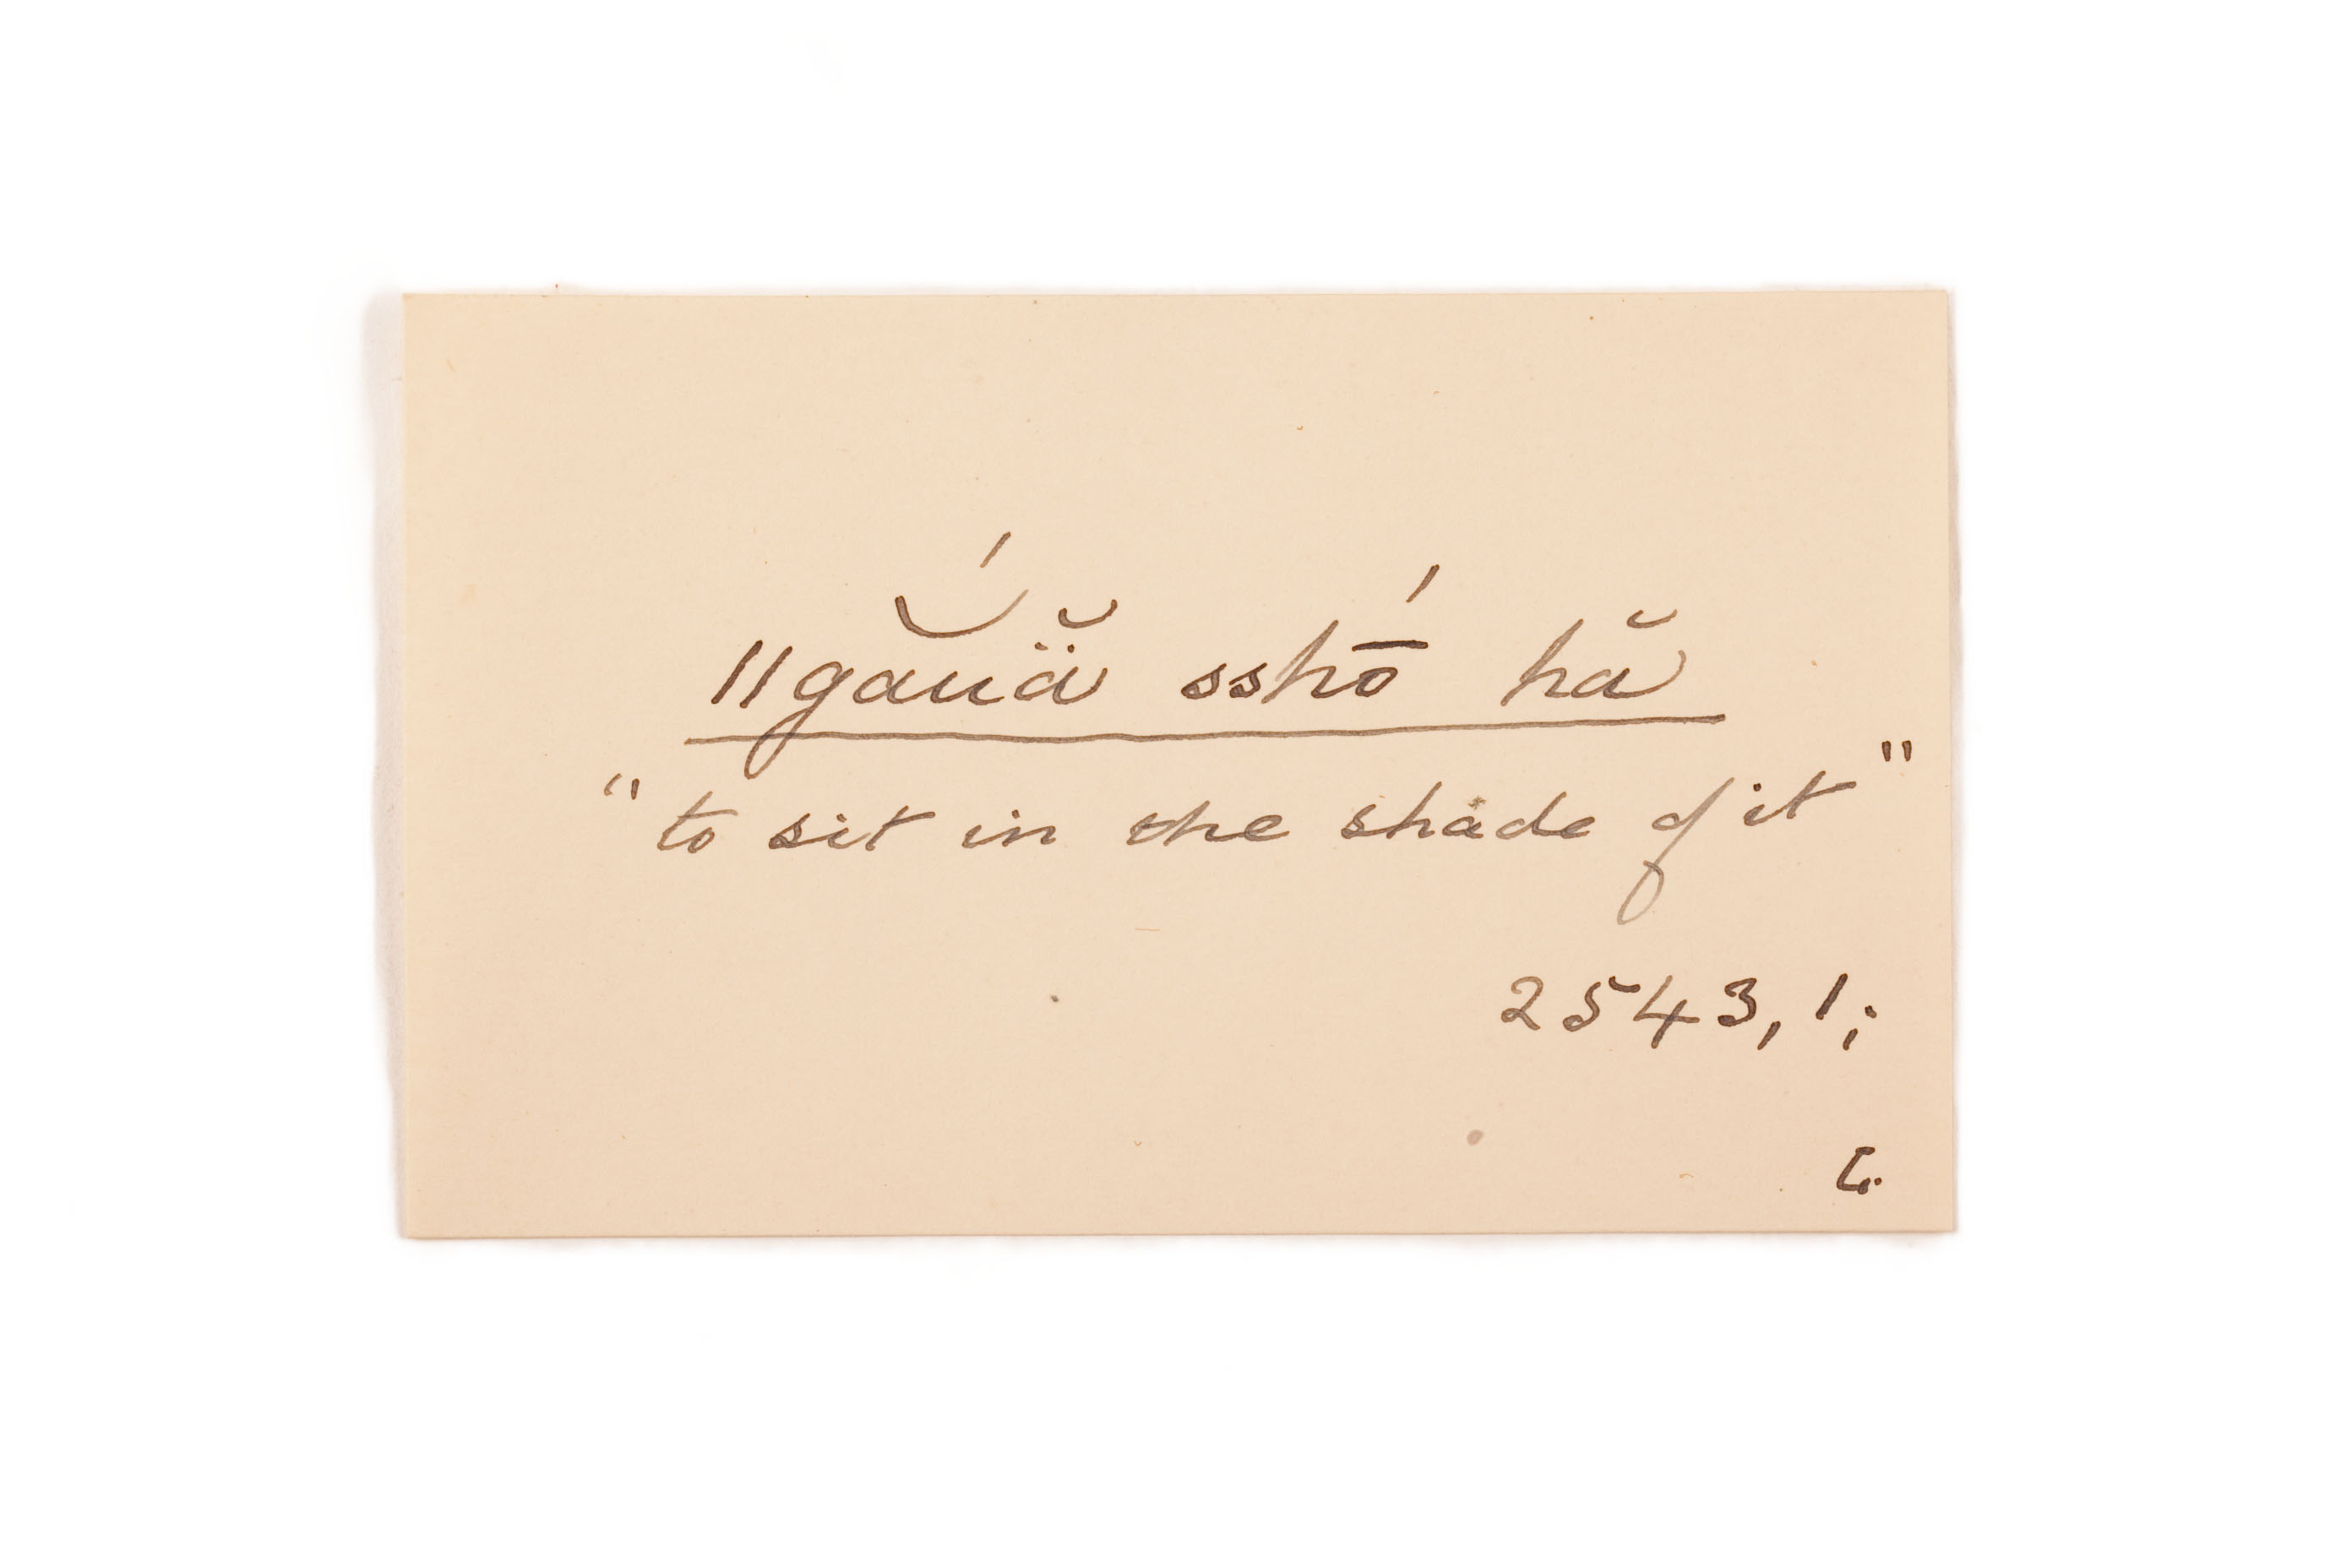 ǁgắŭä̆ sshṓ hă
"to sit in the shade of it"
2543, 1;
L.